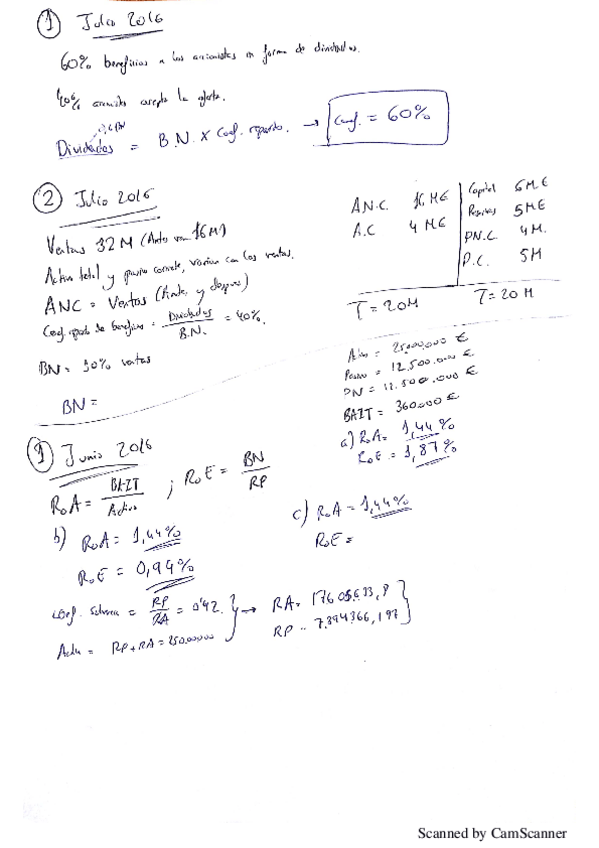 ① Julio 2016
60% beneficios a los accionistas en forma de dividendos.
40% acepta la oferta.
Dividendos = B.N. x Coef. reparto. → Coef. = 60%
② Julio 2016
Ventas 32 M (Antes 16 M)
Activo total y pasivo corriente, varían con las ventas.
ANC = Ventas (Antes y después)
Coef. reparto de beneficios = Dividendos / B.N. = 40%.
BN = 10% ventas
BN =
A.N.C. 16 M€
A.C 4 M€
T = 20M
Capital 6 M €
Reservas 5 M€
P.N.C. 4 M.
P.C. 5M
T = 20 M
Activo = 25.000.000 €
Pasivo = 12.500.000 €
PN = 12.500.000 €
BAIT = 360.000 €
a) RoA = 1,44%
RoE = 1,87%
① Junio 2016
RoA = BAIT / Activo ; RoE = BN / RP
b) RoA = 1,44%
RoE = 0,94%
c) RoA = 1,44%
RoE =
Coef. = RP / RA = 0'42.
RP + RA = 25000000
→ RA = 17605633,8
RP = 7.394366,197
Scanned by CamScanner